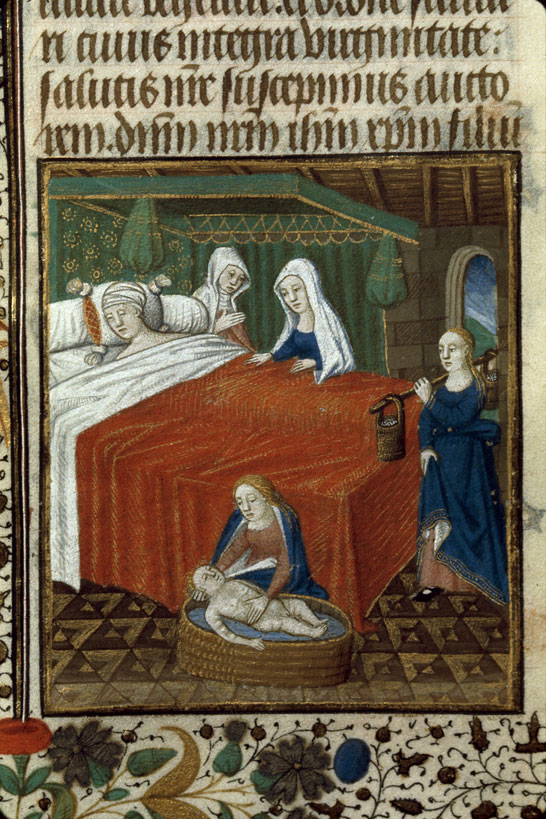 n cuius integra virginitate:
salutis nr̄e suscepimus aucto
rem. dn̄m nr̄m ihm̄ xp̄m filiū